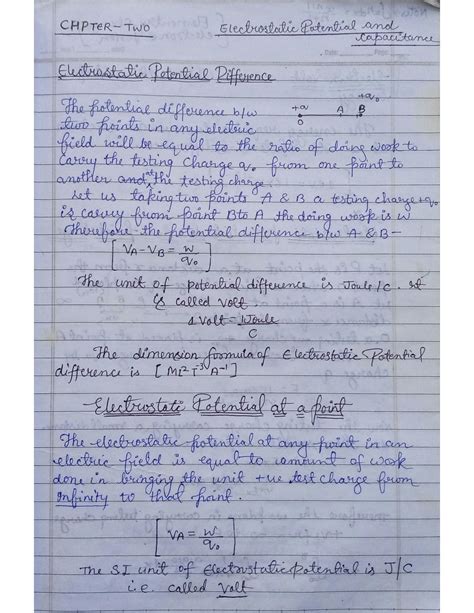 CHPTER-TWO Electrostatic Potential and Capacitance
Electrostatic Potential Difference
The potential difference b/w
two points in any electric
+q O A B +q₀
field will be equal to the ratio of doing work to
carry the testing charge q₀ from one point to
another and the testing charge
Let us taking two points A & B a testing charge +q₀
is carry from point B to A the doing work is W
Therefore the potential difference b/w A & B-
[VA-VB = W/q₀]
The unit of potential difference is Joule/C. It
is called Volt
1 Volt = 1Joule/C
The dimension formula of Electrostatic Potential
difference is [ML²T⁻³A⁻¹]
Electrostatic Potential at a point
The electrostatic potential at any point in an
electric field is equal to amount of work
done in bringing the unit +ve test charge from
infinity to that point.
[VA = W/q₀]
The SI unit of Electrostatic potential is J/C
i.e. called Volt